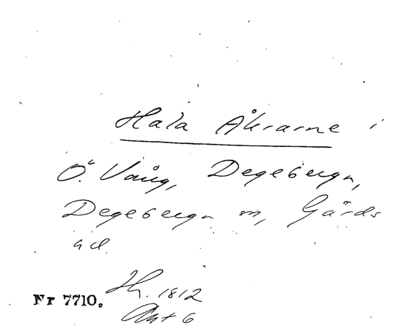 Hala Åkrarne i
Ö. Vång, Degeberga,
Degeberga sn, Gärds
hd.
Nr 7710. Hh. 1812
Akt 6